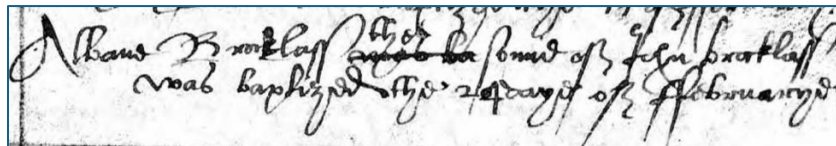 Albane Brocklass the sonne off John brocklass
was baptized the 24 daye off ffebruarye